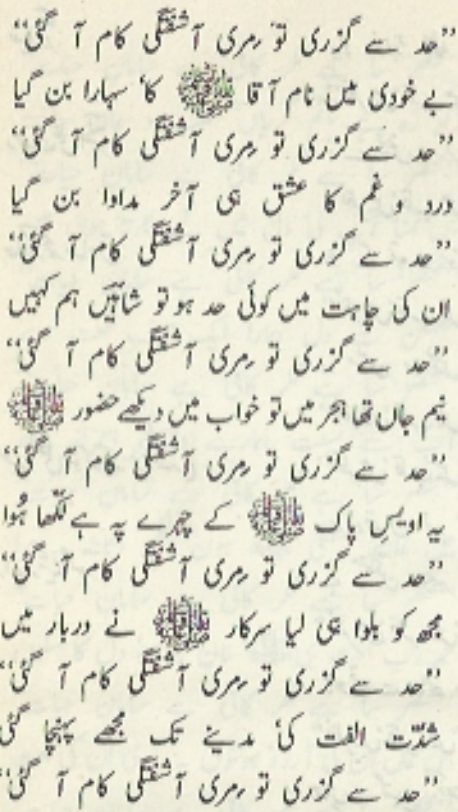 ”حد سے گزری تو مری آشفتگی کام آ گئی“
بے خودی میں نام آقا ﷺ کا سہارا بن گیا
”حد سے گزری تو مری آشفتگی کام آ گئی“
درد و غم کا عشق ہی آخر مداوا بن گیا
”حد سے گزری تو مری آشفتگی کام آ گئی“
ان کی چاہت میں کوئی حد ہو تو شاہیں ہم کہیں
”حد سے گزری تو مری آشفتگی کام آ گئی“
نیم جاں تھا ہجر میں تو خواب میں دیکھے حضور ﷺ
”حد سے گزری تو مری آشفتگی کام آ گئی“
یہ اویس پاک ﷺ کے چہرے پہ ہے لکھا ہُوا
”حد سے گزری تو مری آشفتگی کام آ گئی“
مجھ کو بلوا ہی لیا سرکار ﷺ نے دربار میں
”حد سے گزری تو مری آشفتگی کام آ گئی“
شدّت الفت کی مدینے تک مجھے پہنچا گئی
”حد سے گزری تو مری آشفتگی کام آ گئی“